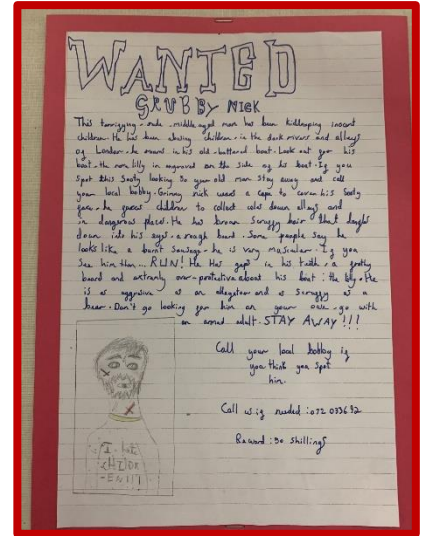 WANTED
GRUBBY NICK
This terrifying - rude - middle aged man has been kidnapping inocent
children. He has been chasing children - in the dark rivers and alleys
of London. he roams in his old - battered boat. Look out for his
boat - the name lilly is engraved on the side of his boat. If you
spot this Sooty looking 50 year old man stay away and call
your local bobby. Grimmy nick wears a cape to cover his Sooty
face. he forces children to collect coles down alleys and
in dangerous places. He has brown scruffy hair that dangls
down into his eyes - a rough beard. Some people say he
looks like a burnt sausage - he is very muscular. If you
see him then... RUN! He Has gaps in his teeth - a grotty
beard and extremly over-protective about his boat : the lilly. He
is as aggrisive as an allegator and as scruffy as a
bear. Don't go looking for him on your own - go with
an armed adult. STAY AWAY!!!
Call your local bobby if
you think you spot
him.
Call us if needed : 072 033632
Reward : 30 shillings
I hate
CHILDR
-EN!!!